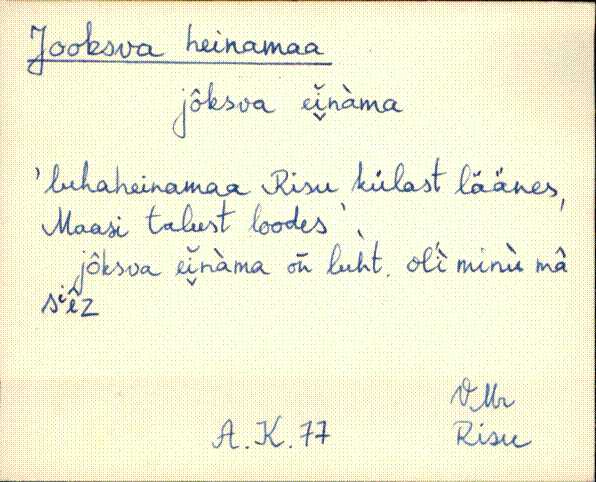 Jooksva heinamaa
jôksva eĭ̯nàma
'luhaheinamaa Risu külast läänes,
Maasi talust loodes'
jôksva eĭ̯nàma on̄ luh̀t. olì minù mâ
sⁱêz
VMr
A.K.77 Risu